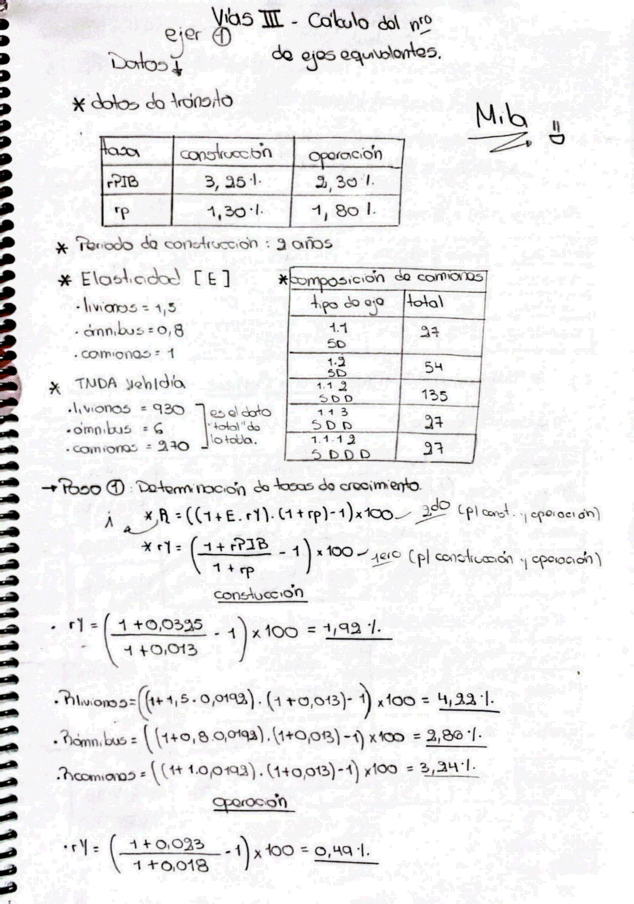 Vías III - Cálculo del nro
de ejes equivalentes.
ejer ①
Datos↓
* datos de tránsito
Mib
tasa construcción operación
rPIB 3,25% 2,30%
rp 1,30% 1,80%
* Periodo de construcción : 2 años
* Elasticidad [E]
·livianos = 1,5
·ómnibus = 0,8
·camiones = 1
* TNDA veh/día
·livianos = 930
·ómnibus = 6
·camiones = 270
es el dato
"total" de
la tabla.
*composición de camiones
tipo de eje total
1.1 27
SD
1.2 54
SD
1.1 2 135
SDD
1 1 3 27
SDD
1.1-1 2 27
SDDD
→ Paso ①: Determinación de tasas de crecimiento.
i * R = ((1+E.rY).(1+rp)-1)x100 2do (p/const. y operación)
* rY = (1+rPIB / 1+rp - 1) x 100 1ero (p/ construcción y operación)
constucción
· rY = (1+0,0325 / 1+0,013 - 1) x 100 = 1,92%.
·Rlivianos = ((1+1,5.0,0192).(1+0,013)-1) x100 = 4,22%.
·Rómnibus = ((1+0,8.0,0192).(1+0,013)-1) x 100 = 2,86%.
·Rcamiones = ((1+1.0,0192).(1+0,013)-1) x100 = 3,24%.
operación
·rY = (1+0,023 / 1+0,018 - 1) x 100 = 0,49%.